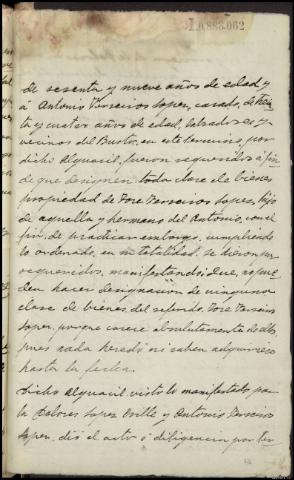 10.883.062
de sesenta y nueve años de edad y
á Antonio Ferreiros Lopez, casado, de trein
ta y cuatro años de edad, labradores y
vecinos del Busto, en este término, por
dicho Alguacil, fueron requeridos á fin
de que designen toda clase de bienes
propiedad de Jose Ferreiros Lopez, hijo
de aquella y hermano del Antonio, con el
fin de practicar embargo, cumpliendo
lo ordenado, en su totalidad, se dieron por
requeridos, manifestando: Que, no pue
den hacer designación de ninguna
clase de bienes del referido Jose Ferreiros
Lopez, porque carece absolutamente de ellos
pues nada heredó ni saben adquiriese
hasta la fecha.
Dicho Alguacil visto lo manifestado por
la Dolores Lopez y Antonio Ferreiros
Lopez, dió el acto ó diligencia por ter